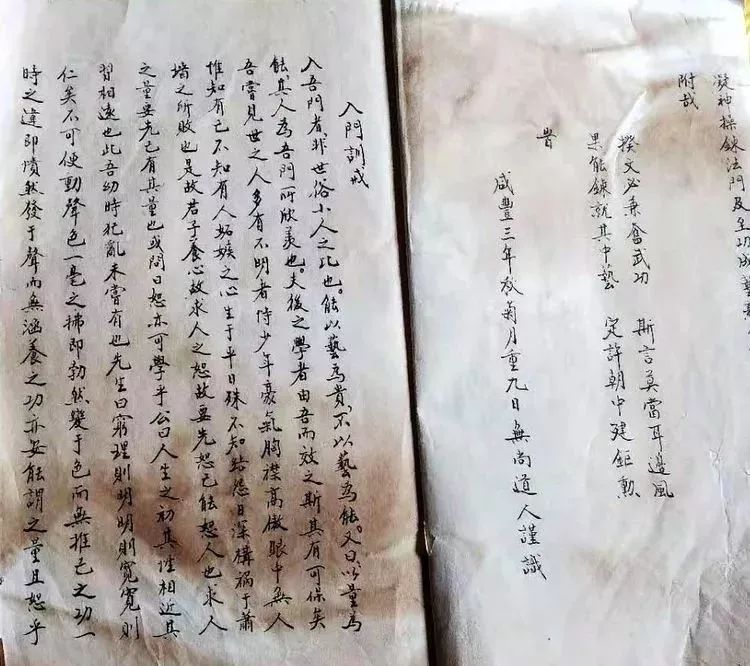 凝神操鍊法門及全功成藝
附哉
揆文必兼奮武功　斯言莫當耳邊風
果能鍊就其中藝　定許朝中建鉅勲
旹
咸豐三年秋菊月重九日無尚道人謹識
入門訓戒
入吾門者非世俗小人之比也。能以藝為貴不以藝為能。又曰以量為
能其人為吾門所欣羨也。夫後之學者由吾而效之斯其有可保矣
吾嘗見世之人多有不明者恃少年豪氣胸襟高傲眼中無人
惟知有己不知有人妬嫉之心生于平日殊不知結怨日深構禍于蕭
墻之所敗也是故君子養心故求人之恕故要先恕己能恕人也求人
之量要先己有其量也或問曰恕亦可學乎公曰人生之初其性相近其
習相遠也此吾幼時犯亂未嘗有也先生曰窮理則明明則寬寬則
仁矣不可便動聲色一毫之拂即勃然變于色而無推己之功一
時之違即憤然發于聲而無涵養之功亦安能謂之量且恕乎